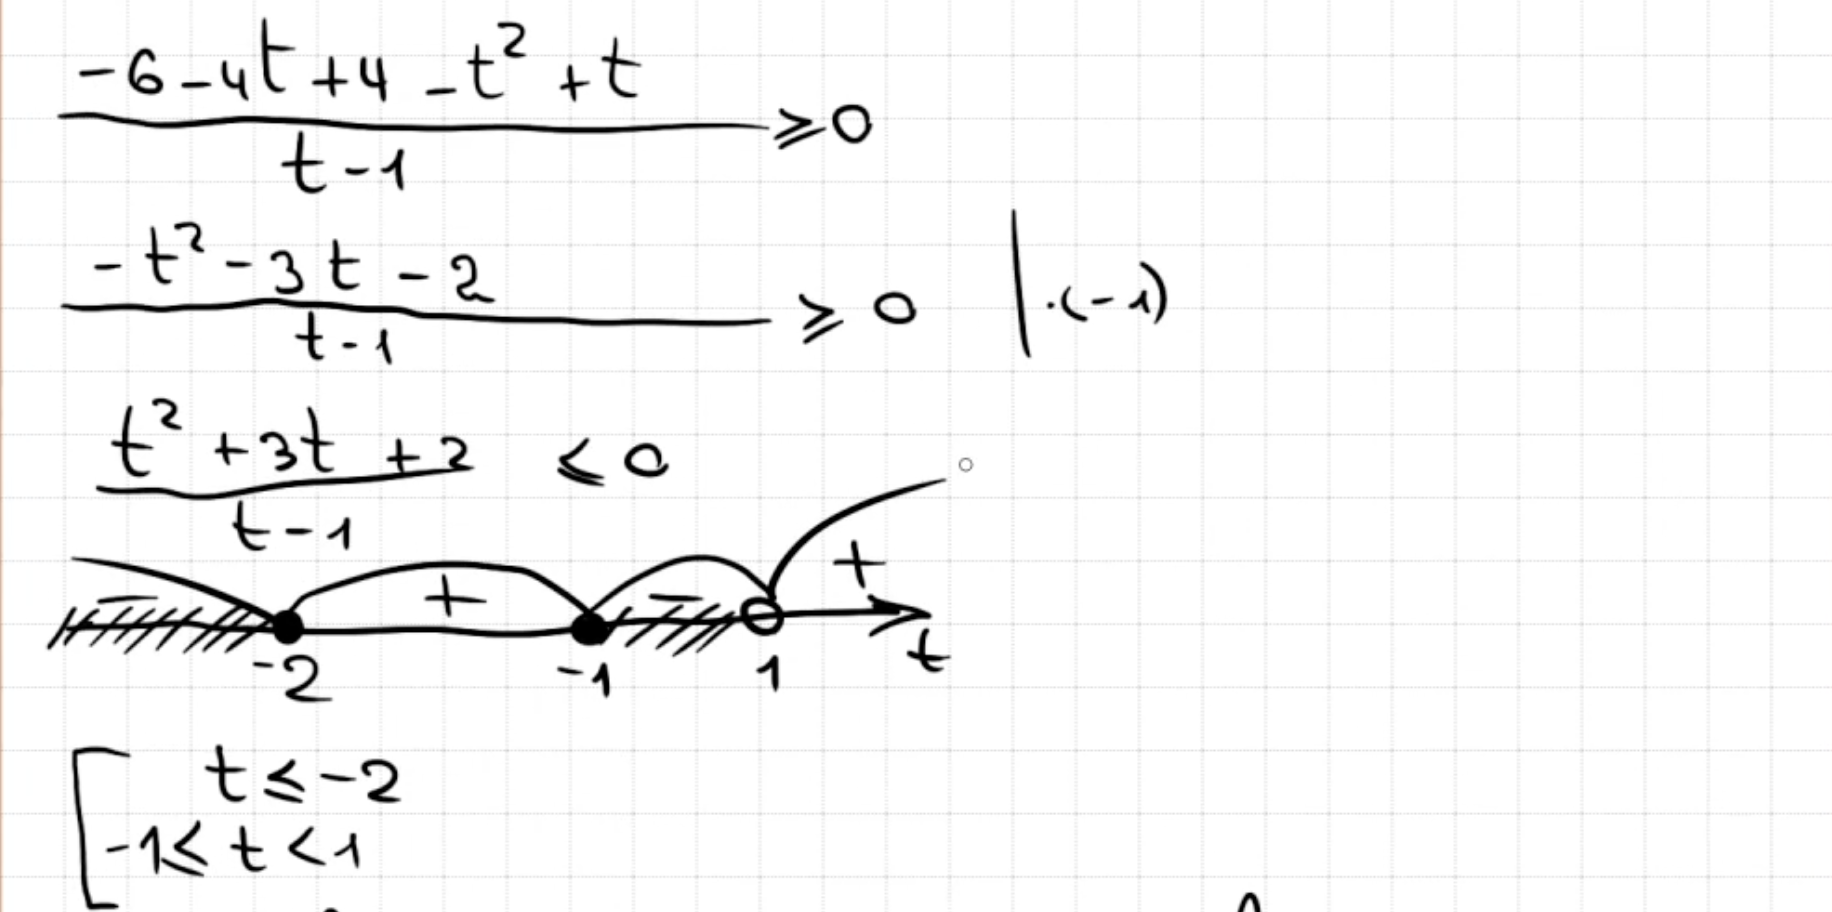 -6-4t+4-t²+t
t-1
≥0
-t²-3t-2
t-1
≥0 |·(-1)
t²+3t+2
t-1
≤0
- + - +
-2 -1 1 t
t≤-2
-1≤t<1